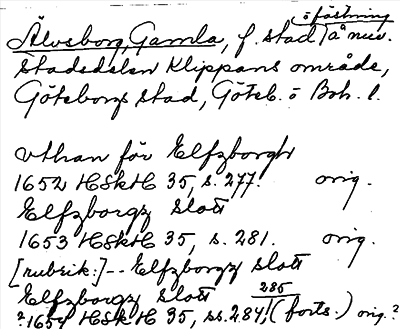 ö fästning
Älvsborg, Gamla, f. stad å nuv.
stadsdelen Klippans område,
Göteborgs stad, Göteb. o Boh. l.
vthan för Elfzborgh
1652 HSkH 35, s. 277. orig.
Elfzborgz Slott
1653 HSkH 35, s. 281. orig.
[rubrik:] -- Elfzborgz Slott
Elfzborgz Slott 285
?1654 HSkH 35, ss. 284, (forts.) orig.?